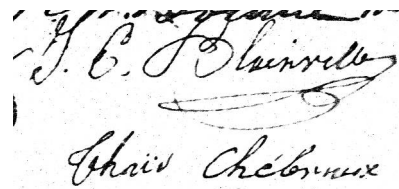 J. C. Blainville
Thaïs Chébroux